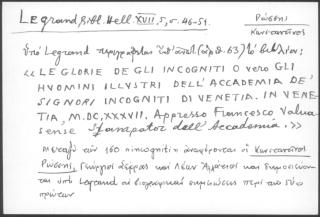 Legrand, Bibl. Hell. XVII, 5, σ. 46-51.
Ρώσης
Κωνσταντῖνος
Ὑπό Legrand περιγράφεται ὑπ' ἀριθ. 63) τό βιβλίον:
« LE GLORIE DE GLI INCOGNITI O vero GLI
HVOMINI ILLVSTRI DELL' ACCADEMIA DE'
SIGNORI INCOGNITI DI VENETIA. IN VENE-
TIA, M.DC.XXXXVII. Appresso Francesco Valua-
sense Stampator dell' Accademia. »
Μεταξύ τῶν 160 «incogniti» ἀναφέρονται οἱ Κωνσταντῖνος
Ρώσης, Γεώργιος καί Λέων Ἀλλάτιος καί δημοσιεύον-
ται ὑπό Legrand αἱ βιογραφικαί σημειώσεις περί τῶν δύο
πρώτων